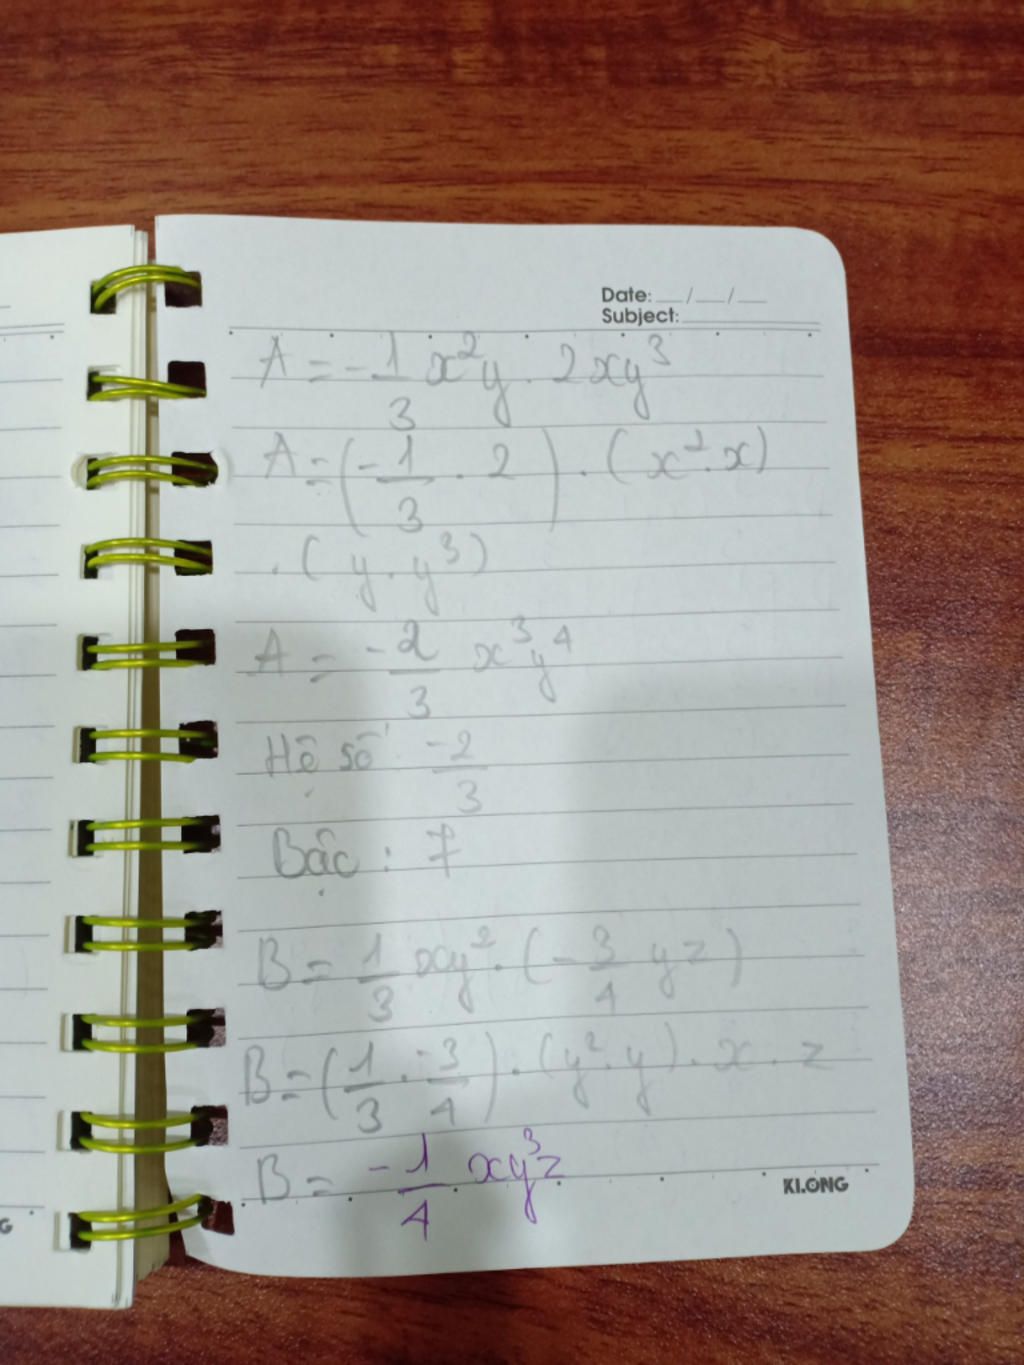 Date: __/__/__
Subject:
A = -1/3 x²y . 2xy³
A = (-1/3 . 2) . (x² . x)
. (y . y³)
A = -2/3 x³y⁴
Hệ số: -2/3
Bậc: 7
B = 1/3 xy² . (-3/4 yz)
B = (1/3 . -3/4) . (y² . y) . x . z
B = -1/4 xy³z
KLONG
G